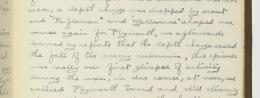 seen, a depth charge was dropped by
and "Kepleman" and "Melbourne" shaped our
course again for Plymouth, we afterwards
learned by reports that the depth charge sealed
the fate of the enemy submarine, this episode
was really our first glimpse of activity
during the war, in due course, at noon, we
entered Plymouth Sound and still steaming